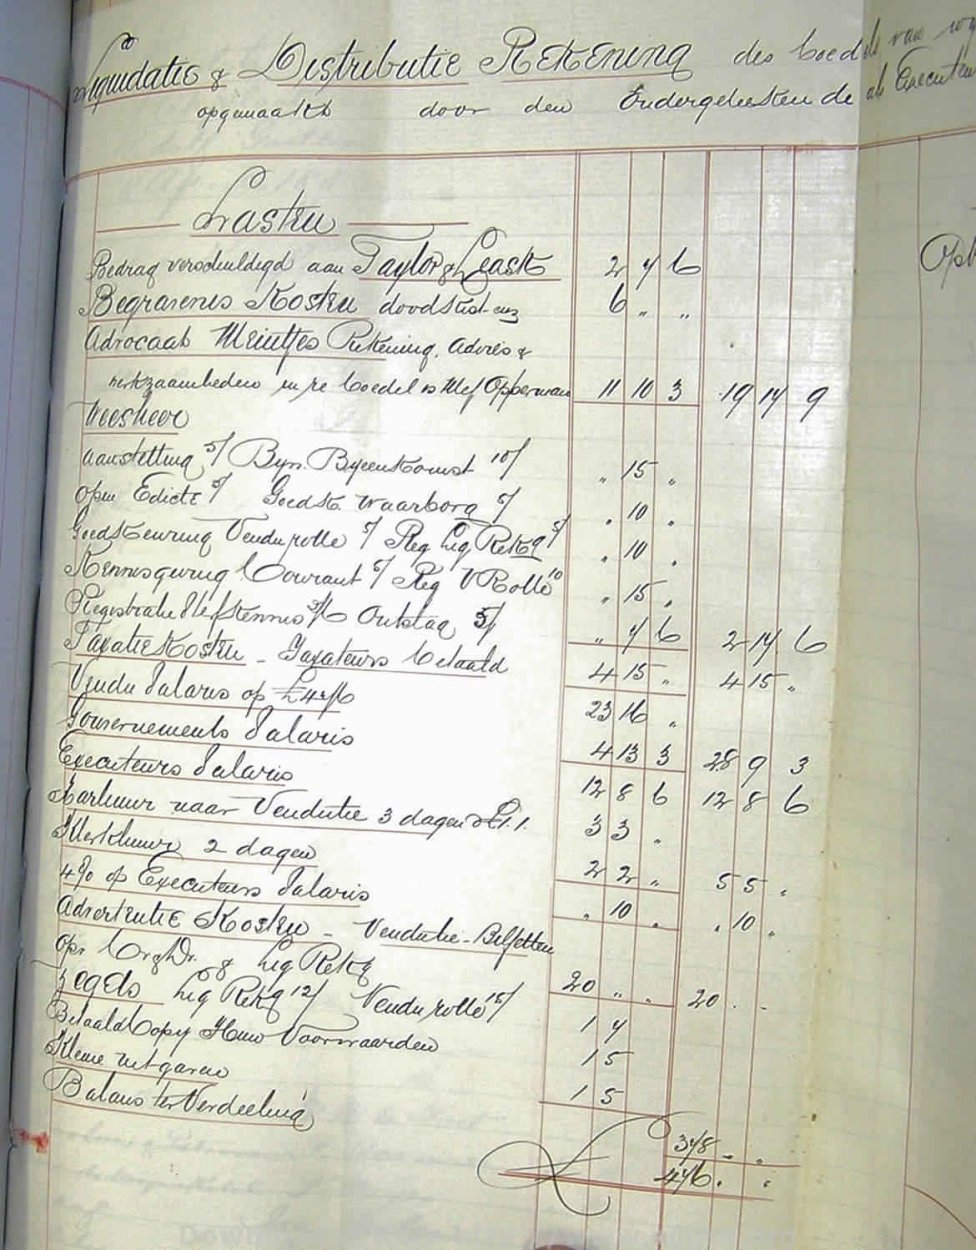 Liquidatie & Distributie Rekening des Boedels van wy
opgemaakt door den Ondergeteekende als Executeur
Lasten
Bedrag verschuldigd aan Taylor & Leask 2 4 6
Begravenis Kosten doodskist enz 6 " "
Advocaat Meintjes Rekening, Advies &
werkzaamheden in re boedel Opperman 11 10 3 19 14 9
Weesheer
Aanstelling 5/ Byz. Byeenkomst 10/ " 15 "
Open Edicte 5/ Goedk. Waarborg 5/ " 10 "
Goedkeuring Vendurolle 5/ Reg Liq Rekg 5/ " 10 "
Kennisgeving Courant 5/ Reg V Rolle 10 " 15 "
Registratie Erfkennis Ontslag 5/ " 4 6 2 14 6
Taxatie Kosten - Taxateurs betaald 4 15 " 4 15 "
Vendu Salaris op 23 16 "
Gouvernements Salaris 4 13 3 28 9 3
Executeurs Salaris 12 8 6 12 8 6
Karhuur naar Vendutie 3 dagen 3 3 "
Klerkhuur 2 dagen 2 2 " 5 5 "
4% op Executeurs Salaris " 10 " " 10 "
Advertentie Kosten - Vendutie - Biljetten
opr Cr & Dr. & Liq Rekg 20 " " 20 " "
Zegels Liq Rekg 12/ Vendu rolle 15/ 1 7
Betaald Copy Huw Voorwaarden 1 5
Kleine uitgaven 1 5
Balans ter Verdeeling 348 " "
£ 446 " "
Opb